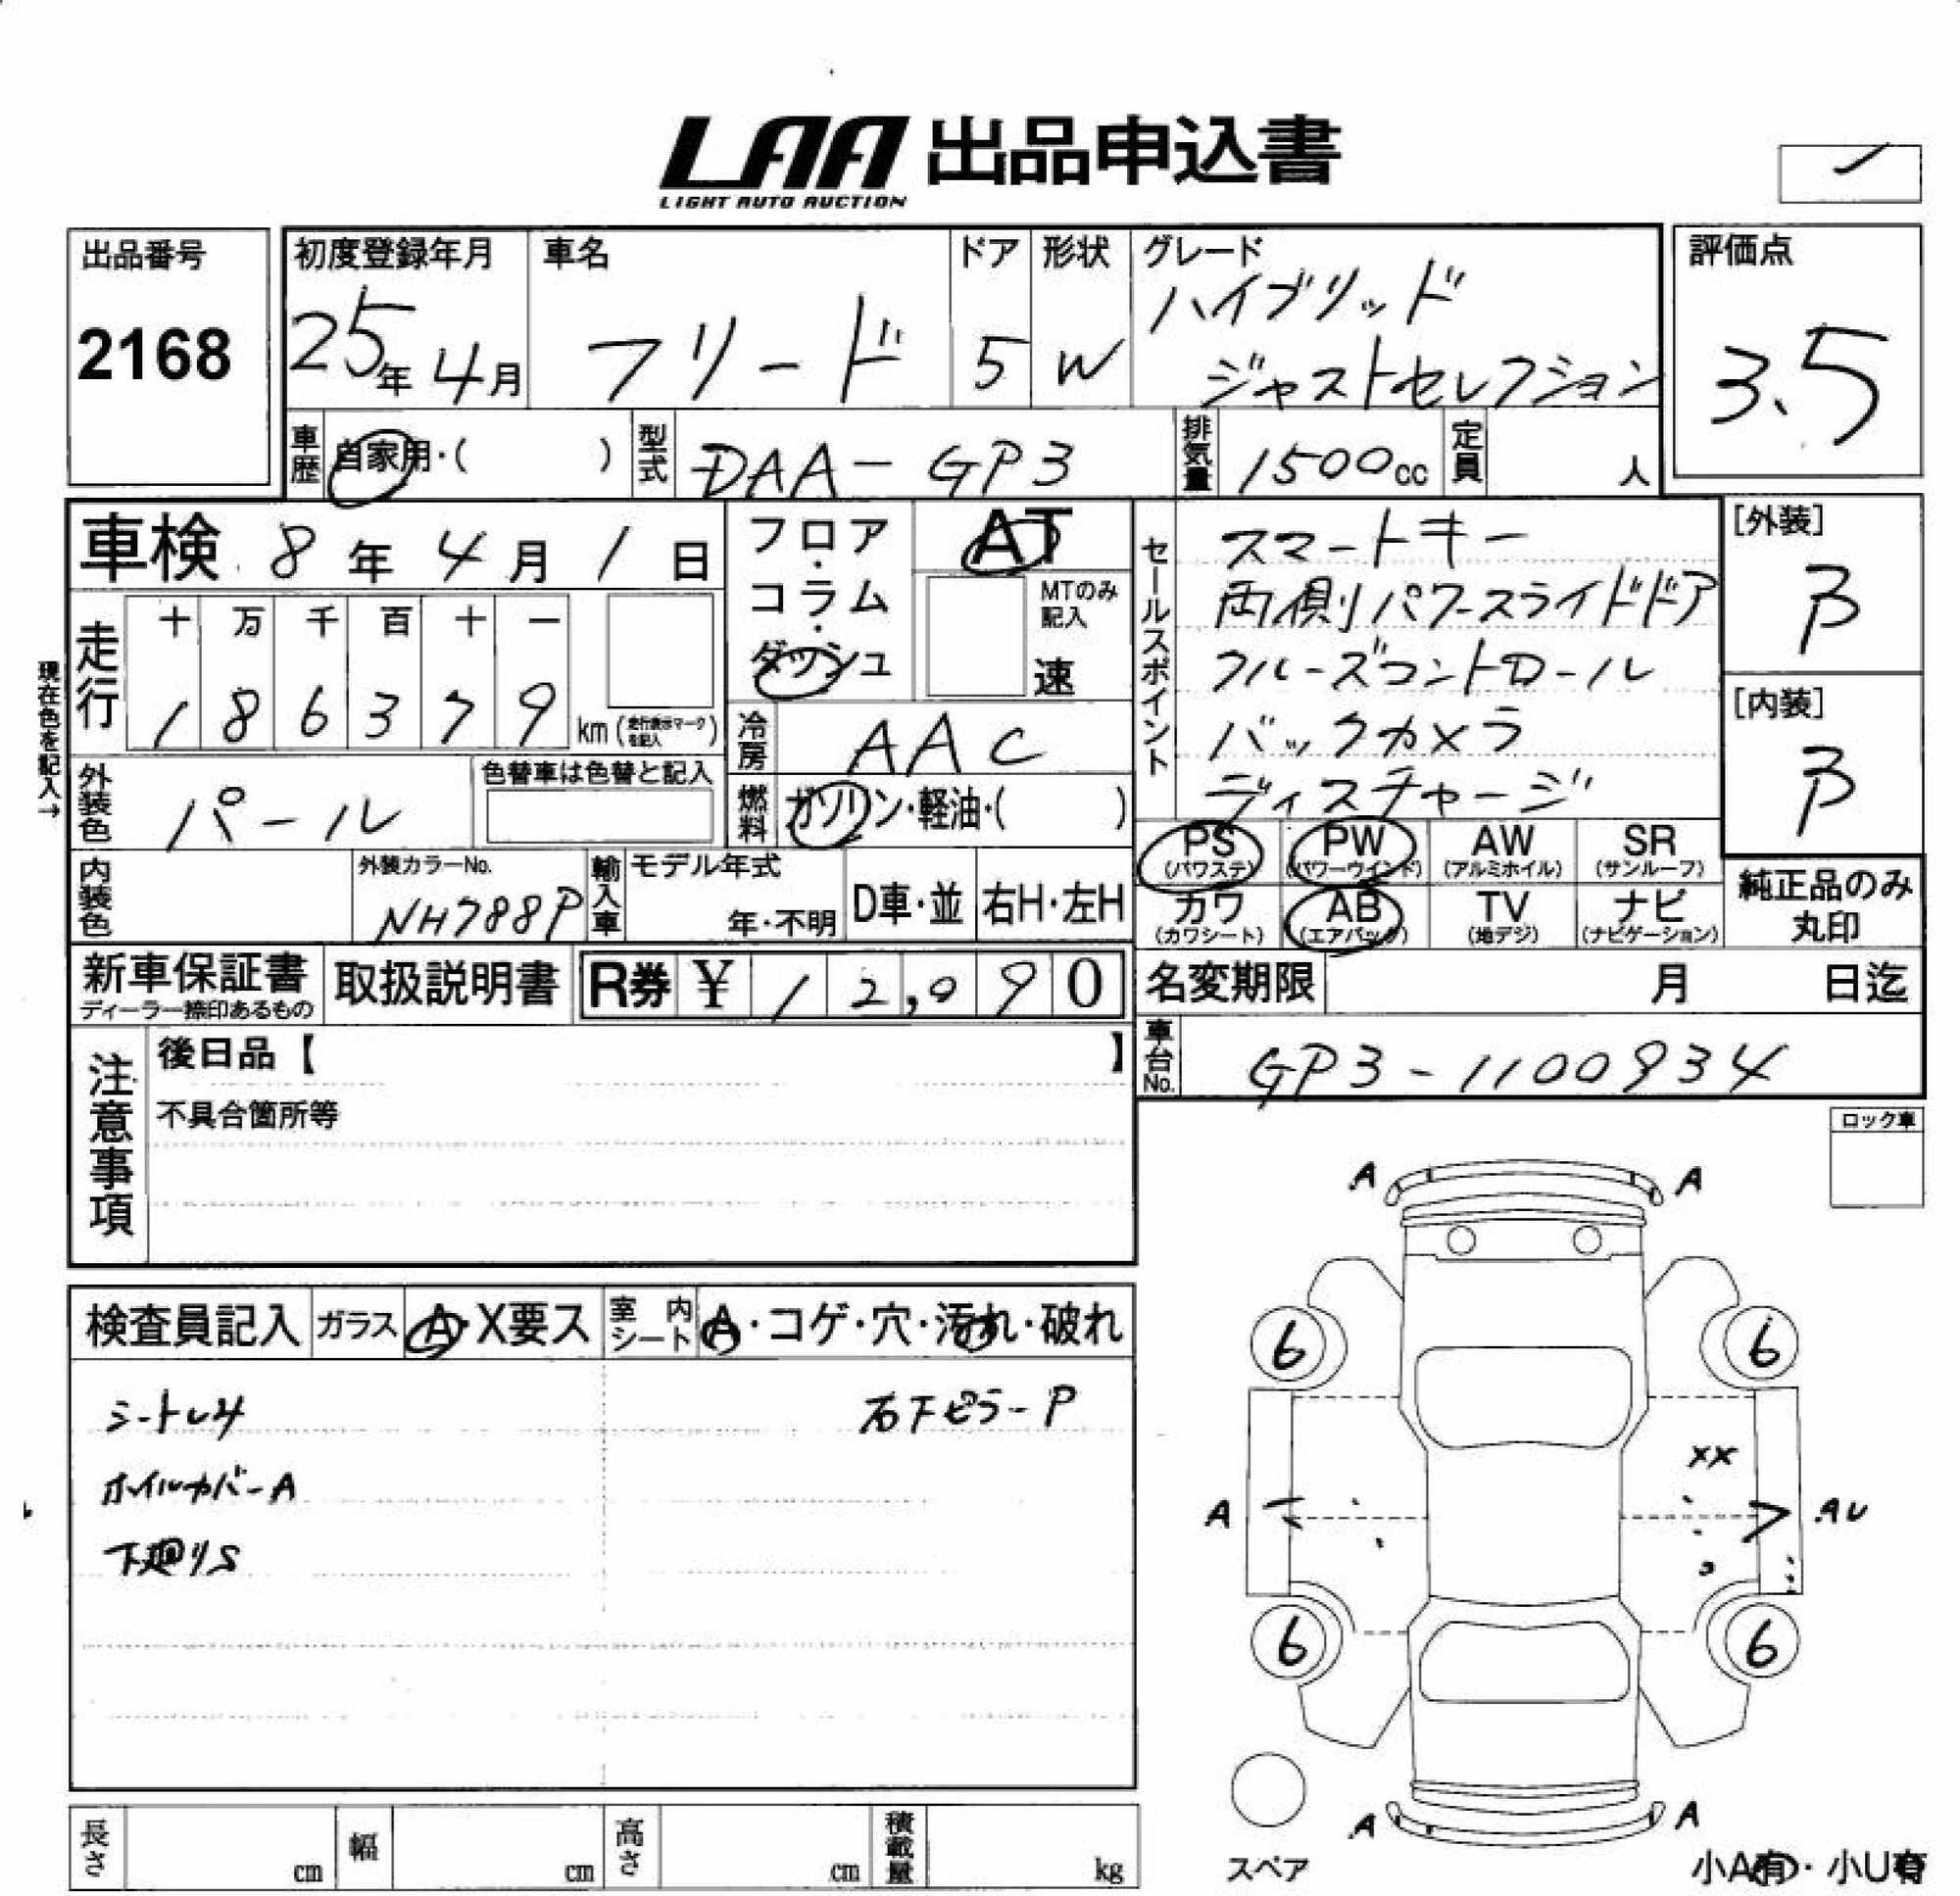 LAA 出品申込書
LIGHT AUTO AUCTION
出品番号
2168
初度登録年月
25年4月
車名
フリード
ドア
5
形状
W
グレード
ハイブリッド
ジャストセレクション
評価点
3.5
車歴
自家用・( )
型式
DAA-GP3
排気量
1500cc
定員
人
車検 8年4月1日
現在色を記入→
走行
十 万 千 百 十 一
1 8 6 3 7 9
km (走行表示マークを記入)
フロア・コラム・ダッシュ
AT
MTのみ記入
速
冷房
AAC
燃料
ガソリン・軽油・( )
外装色
パール
色替車は色替と記入
内装色
外装カラーNo.
NH788P
輸入車
モデル年式
年・不明
D車・並
右H・左H
セールスポイント
スマートキー
両側パワースライドドア
クルーズコントロール
バックカメラ
ディスチャージ
[外装]
B
[内装]
B
PS
(パワステ)
PW
(パワーウインド)
AW
(アルミホイル)
SR
(サンルーフ)
カワ
(カワシート)
AB
(エアバック)
TV
(地デジ)
ナビ
(ナビゲーション)
純正品のみ
丸印
新車保証書
ディーラー捺印あるもの
取扱説明書
R券 ¥12,090
名変期限
月 日迄
車台No.
GP3-1100934
注意事項
後日品【 】
不具合箇所等
ロック車
検査員記入
ガラス
A・X要ス
室内シート
A・コゲ・穴・汚れ・破れ
シートレス
ホイルカバーA
下廻りS
右下ピラーP
A A
6 6
XX
A AU
6 6
スペア
A A
小A有・小U有
長さ cm
幅 cm
高さ cm
積載量 kg